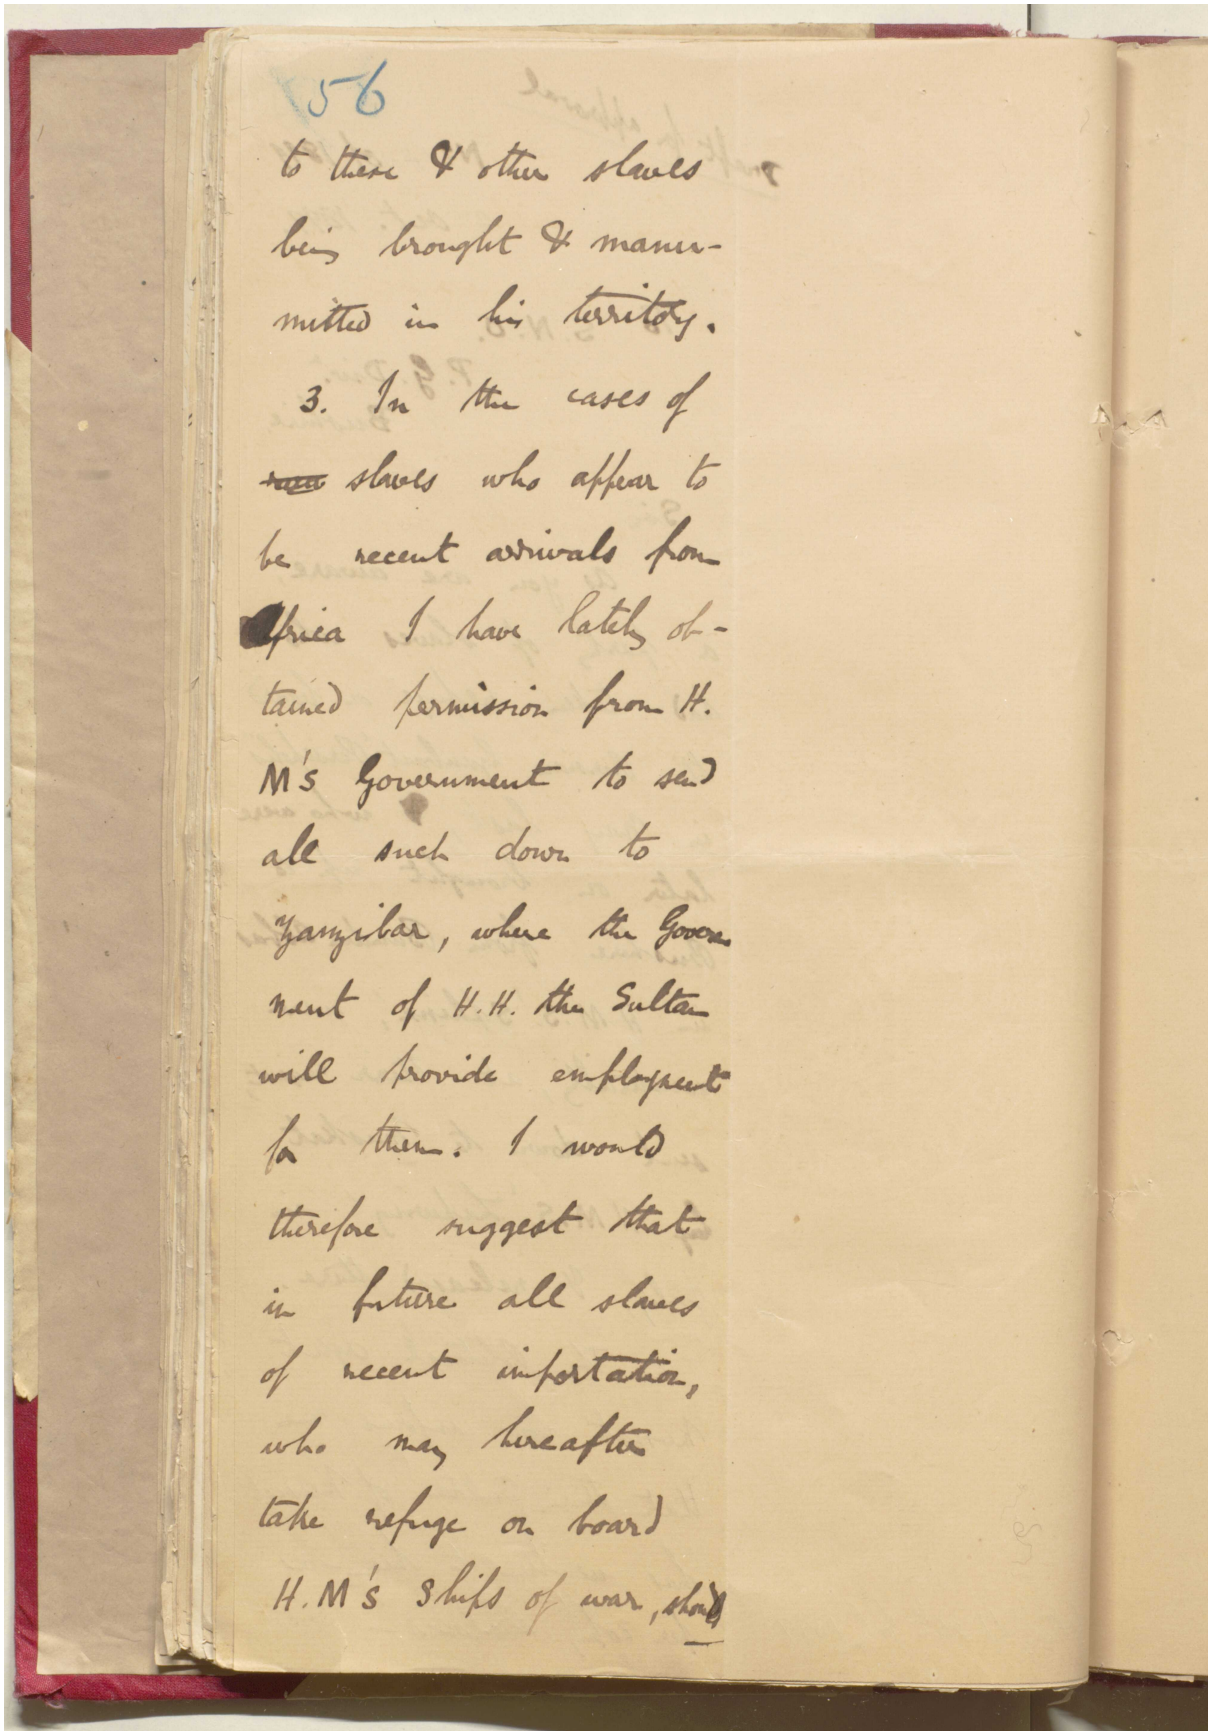 56
to these & other slaves
being brought & manu-
mitted in his territory.
3. In the cases of
slaves who appear to
be recent arrivals from
Africa I have lately ob-
tained permission from H.
M's Government to send
all such down to
Zanzibar, where the Govern
ment of H.H. the Sultan
will provide employment
for them. I would
therefore suggest that
in future all slaves
of recent importation,
who may hereafter
take refuge on board
H.M's Ships of war, should